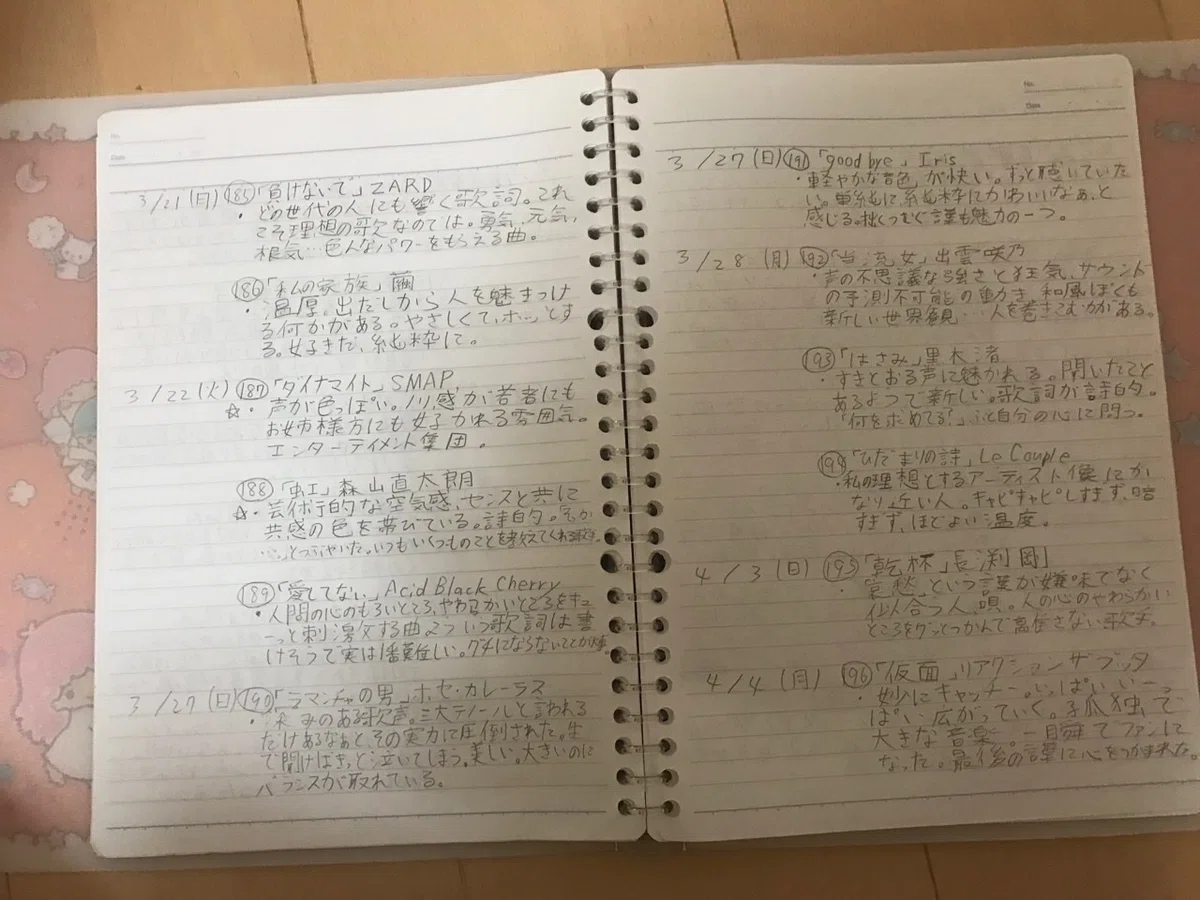 No.
Date
3/21 (月) 185 「負けないで」 ZARD
・どの世代の人にも響く歌詞。これ
こそ理想の歌なのでは。勇気、元気、
根気…色んなパワーをもらえる曲。
186 「私の家族」 繭
・温厚。出だしから人を魅きつけ
る何かがある。やさしくて、ホッとす
る。好きだ、純粋に。
3/22 (火) 187 「ダイナマイト」 SMAP
☆・声が色っぽい。ノリ感が若者にも
お姉様方にも好かれる雰囲気。
エンターテイメント集団。
188 「虹」 森山直太朗
☆・芸術的な空気感、センスと共に
共感の色を帯びている。詩的。
とつぶやいた。いつもいくつものことを教えてくれる
189 「愛してない」 Acid Black Cherry
・人間の心のもろいところ、やわらかいところをキュ
ーっと刺激する曲。こういう歌詞は書
けそうで実は1番難しい。グチにならないことが
3/27 (日) 190 「ラマンチャの男」 ホセ・カレーラス
・深みのある歌声。三大テノールと言われる
だけあるなぁと、その実力に圧倒された。生
で聞けばきっと泣いてしまう。美しい。大きいのに
バランスが取れている。
No.
Date
3/27 (日) 191 「good bye」 Iris
・軽やかな音色が快い。ずっと聴いていた
い。単純に、純粋にかわいいなぁ、と
感じる。拙くつむぐ言葉も魅力の一つ。
3/28 (月) 192 「当流女」 出雲咲乃
・声の不思議な強さと狂気、サウンド
の予測不可能の動き、和風ぽくも
新しい世界観…人を巻きこむ力がある。
193 「はさみ」 黒木渚
・すきとおる声に魅かれる。聞いたこと
あるようで新しい。歌詞が詩的。
「何を求めてる?」ふと自分の心に問う。
194 「ひだまりの詩」 Le Couple
・私の理想とするアーティスト像にか
なり近い人。キャピキャピしすぎず、暗
すぎず、ほどよい温度。
4/3 (日) 195 「乾杯」 長渕 剛
・“哀愁”という言葉が嫌味でなく
似合う人、唄。人の心のやわらかい
ところをグッとつかんで離さない歌手。
4/4 (月) 196 「仮面」 リアクション ザ ブッタ
・妙にキャッチー。いっぱいいーっ
ぱい広がっていく。孤独で
大きな音楽。一瞬でファンに
なった。最後の言葉に心をつかまれた。